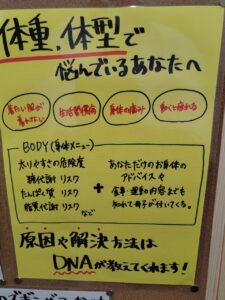 体重,体型で
悩んでいるあなたへ
着たい服が
着れない
生活習慣病
身体の痛み
動くと疲れる
BODY(身体メニュー)
太りやすさの危険度
糖代謝 リスク
たんぱく質 リスク
脂質代謝 リスク
など
+
あなただけのお身体の
アドバイスや
食事・運動内容までも
知れて冊子が付いてくる。
原因や解決方法は
DNAが教えてくれます!